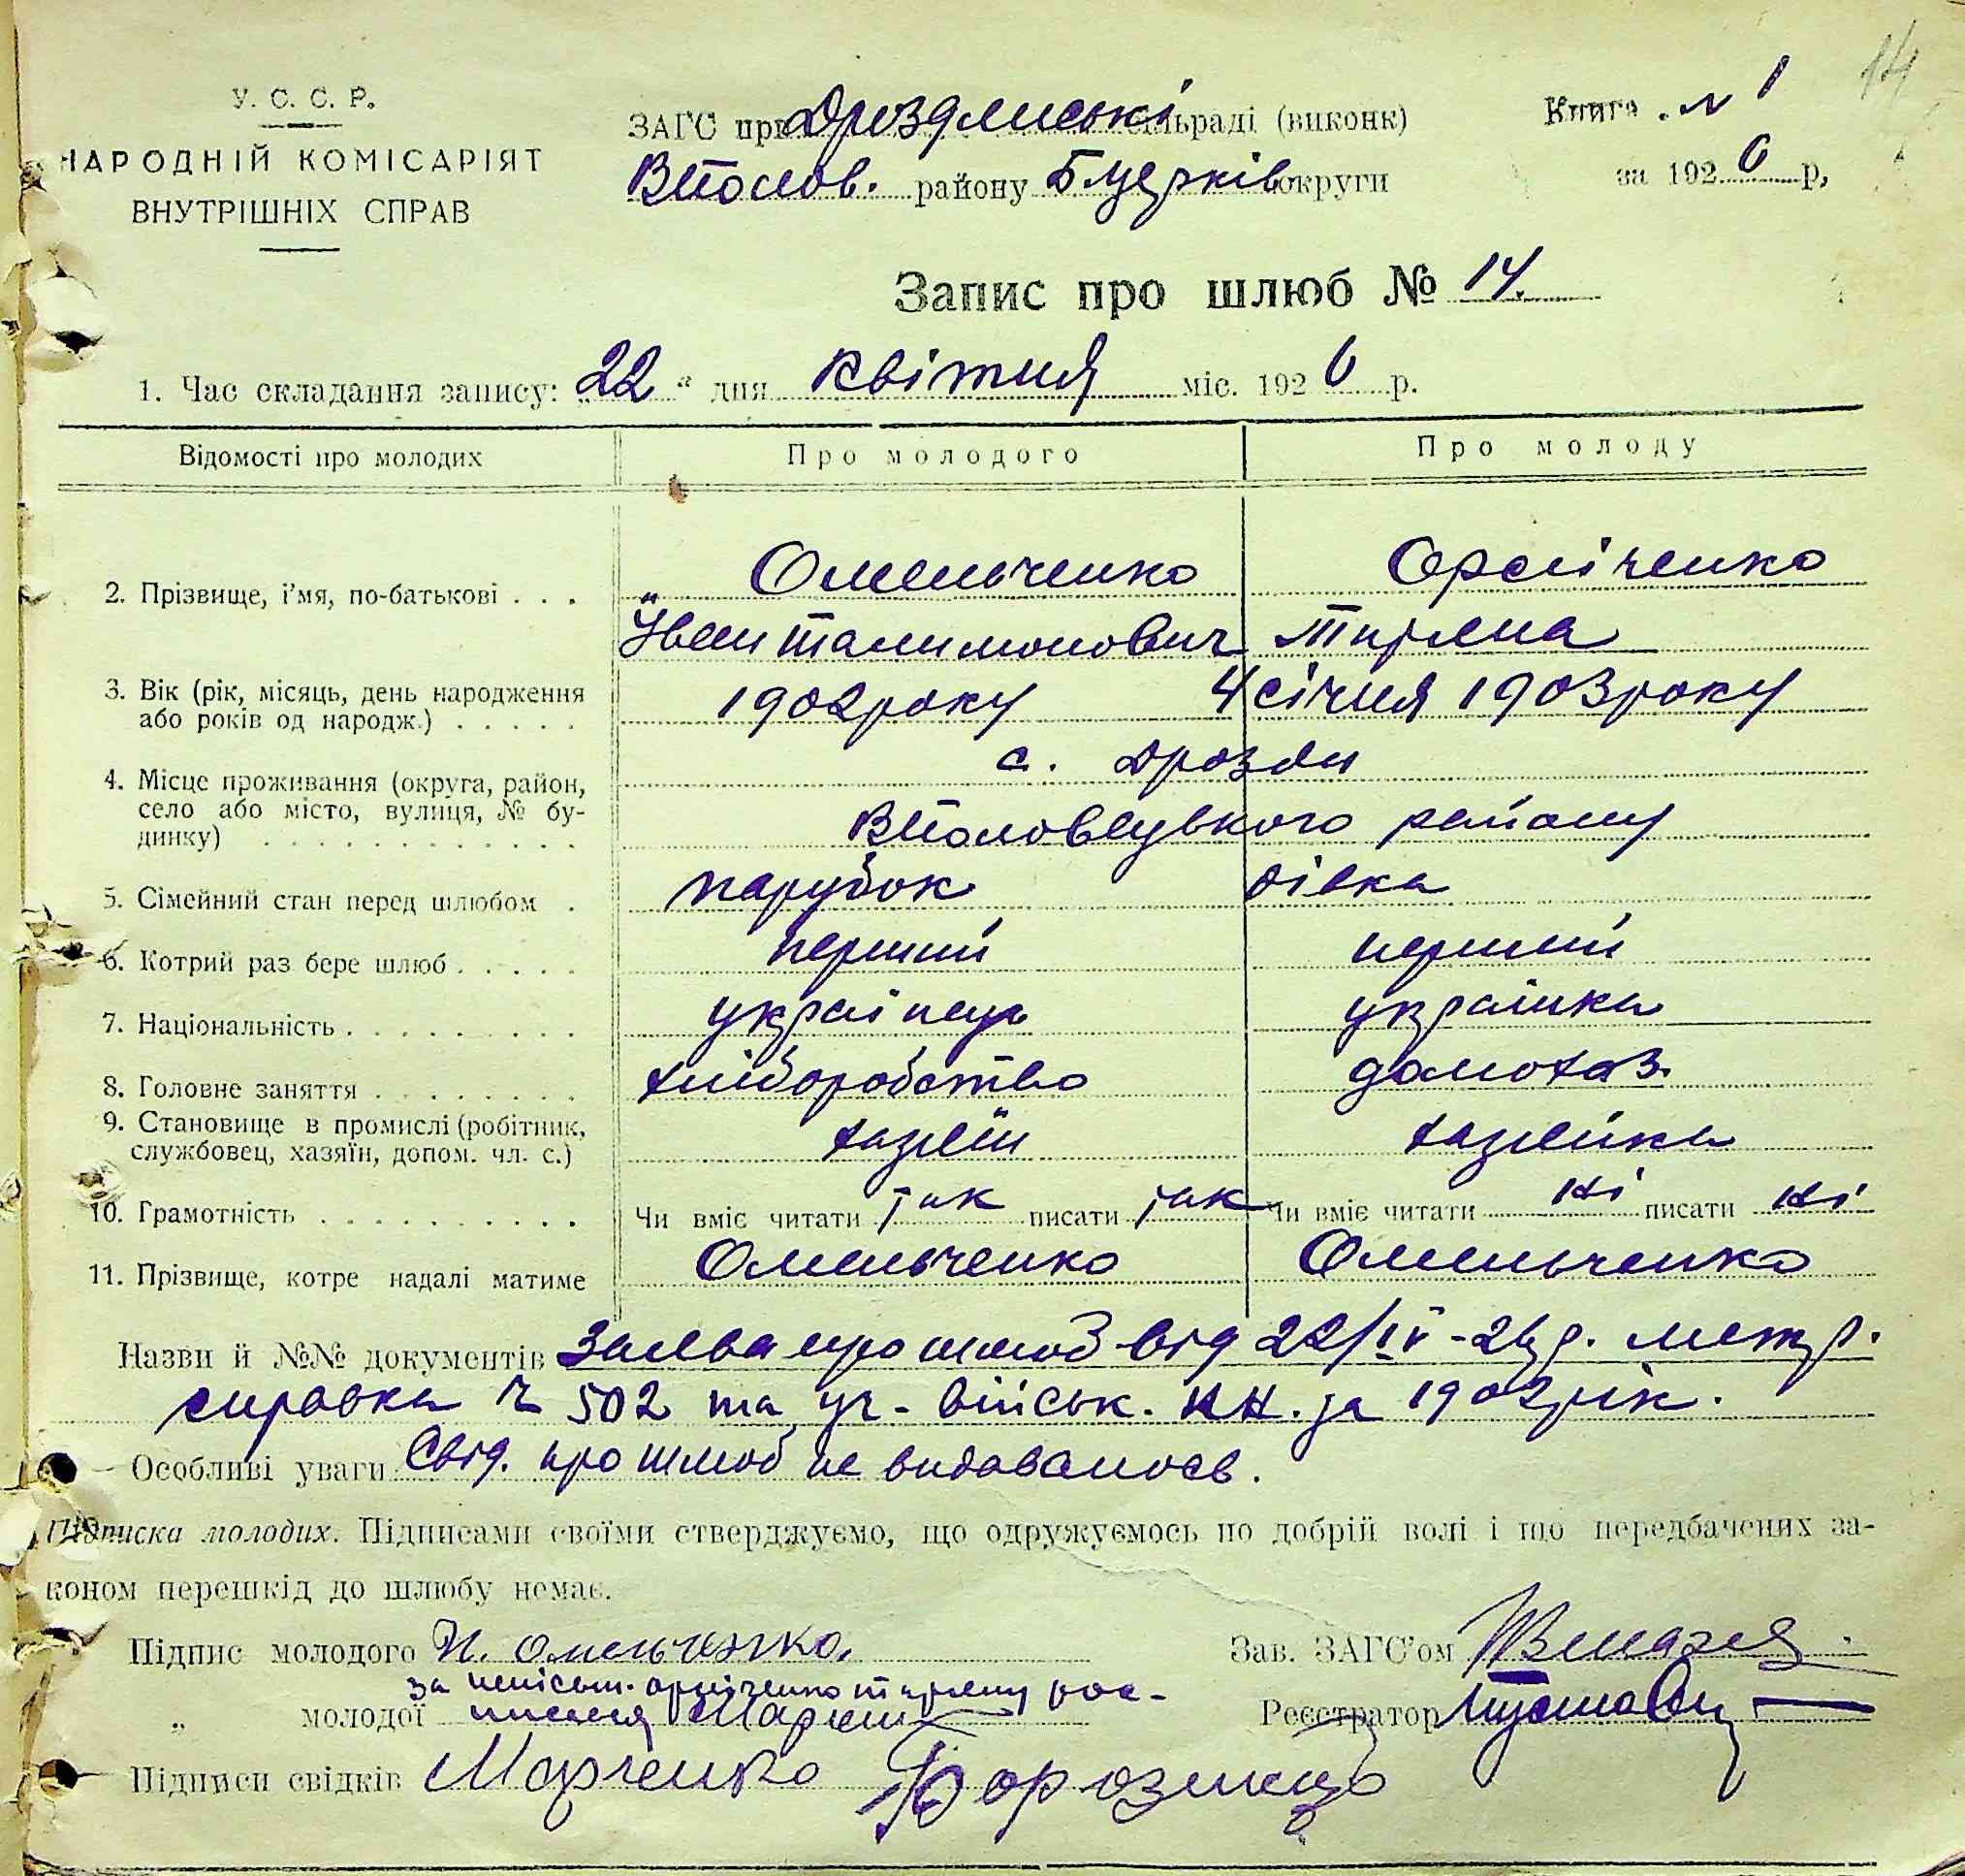 14
У. С. С. Р.
НАРОДНІЙ КОМІСАРІЯТ
ВНУТРІШНІХ СПРАВ
ЗАГС при Дроздянські сільраді (виконк)
Вполов. району Б Церків округи
Книга № 1
за 1926 р,
Запис про шлюб № 14.
1. Час складання запису: „22" дня квітня міс. 1926 р.
Відомості про молодих
Про молодого
Про молоду
2. Прізвище, і'мя, по-батькові . . .
Омельченко
Іван Талимонович
Орсіченко
3. Вік (рік, місяць, день народження
або років од народж.) . . . . .
1902 року
4 січня 1903 року
4. Місце проживання (округа, район,
село або місто, вулиця, № бу-
динку) . . . . . . . . . . . .
с. Дрозди
Вполовецького району
5. Сімейний стан перед шлюбом .
парубок
дівка
6. Котрий раз бере шлюб . . . . .
перший
перший
7. Національність . . . . . . . . .
українець
українка
8. Головне заняття . . . . . . . .
хліборобство
домохаз.
9. Становище в промислі (робітник,
службовец, хазяїн, допом. чл. с.)
хазяїн
хазяйка
10. Грамотність . . . . . . . . . .
Чи вміє читати так писати так
Чи вміє читати ні писати ні
11. Прізвище, котре надалі матиме
Омельченко
Омельченко
Назви й №№ документів Заява про шлюб від 22/IV-26 р. метр.
справка ч 502 та уч-військ. кн. за 1902 рік.
Особливі уваги Свід. про шлюб не видавалось.
Підписка молодих. Підписами своїми стверджуємо, що одружуємось по добрій волі і що передбачених за-
коном перешкід до шлюбу немає.
Підпис молодого И. Омельченко.
Зав. ЗАГС'ом
за неписьм. рос-
„ молодої писався
Реєстратор
Підписи свідків Марченко